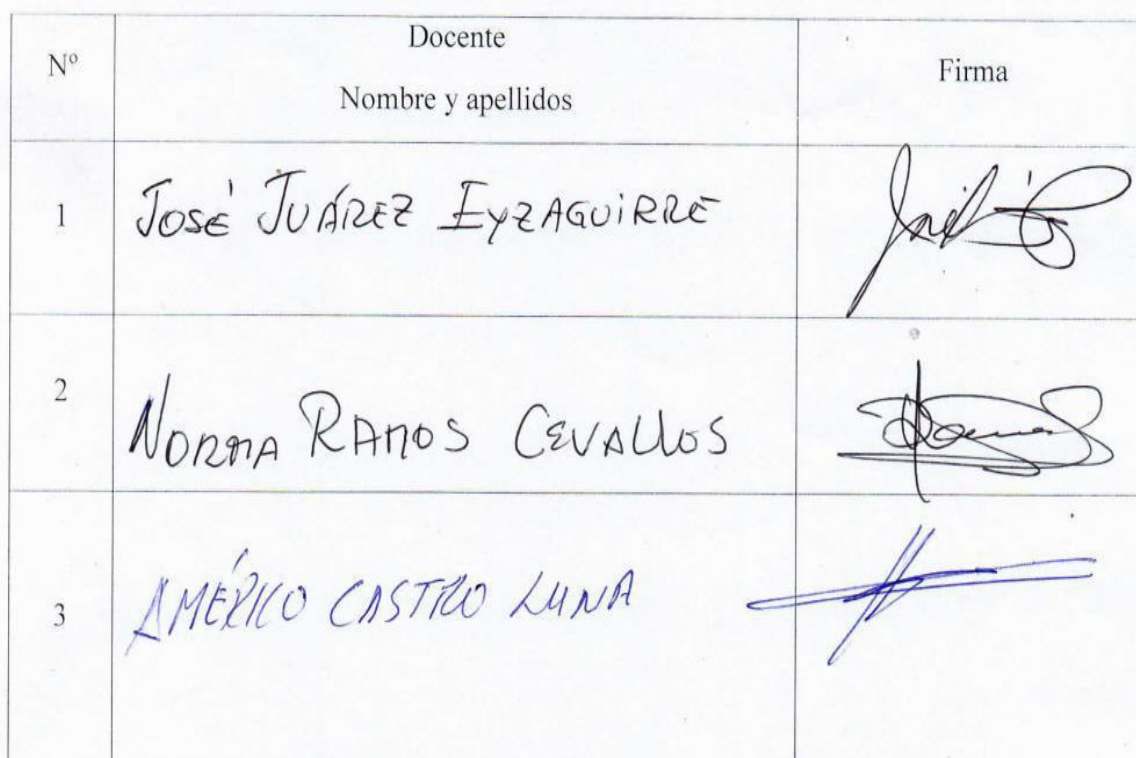 Nº
Docente
Nombre y apellidos
Firma
1
JOSÉ JUÁREZ EYZAGUIRRE
2
NORMA RAMOS CEVALLOS
3
AMÉRICO CASTRO LUNA